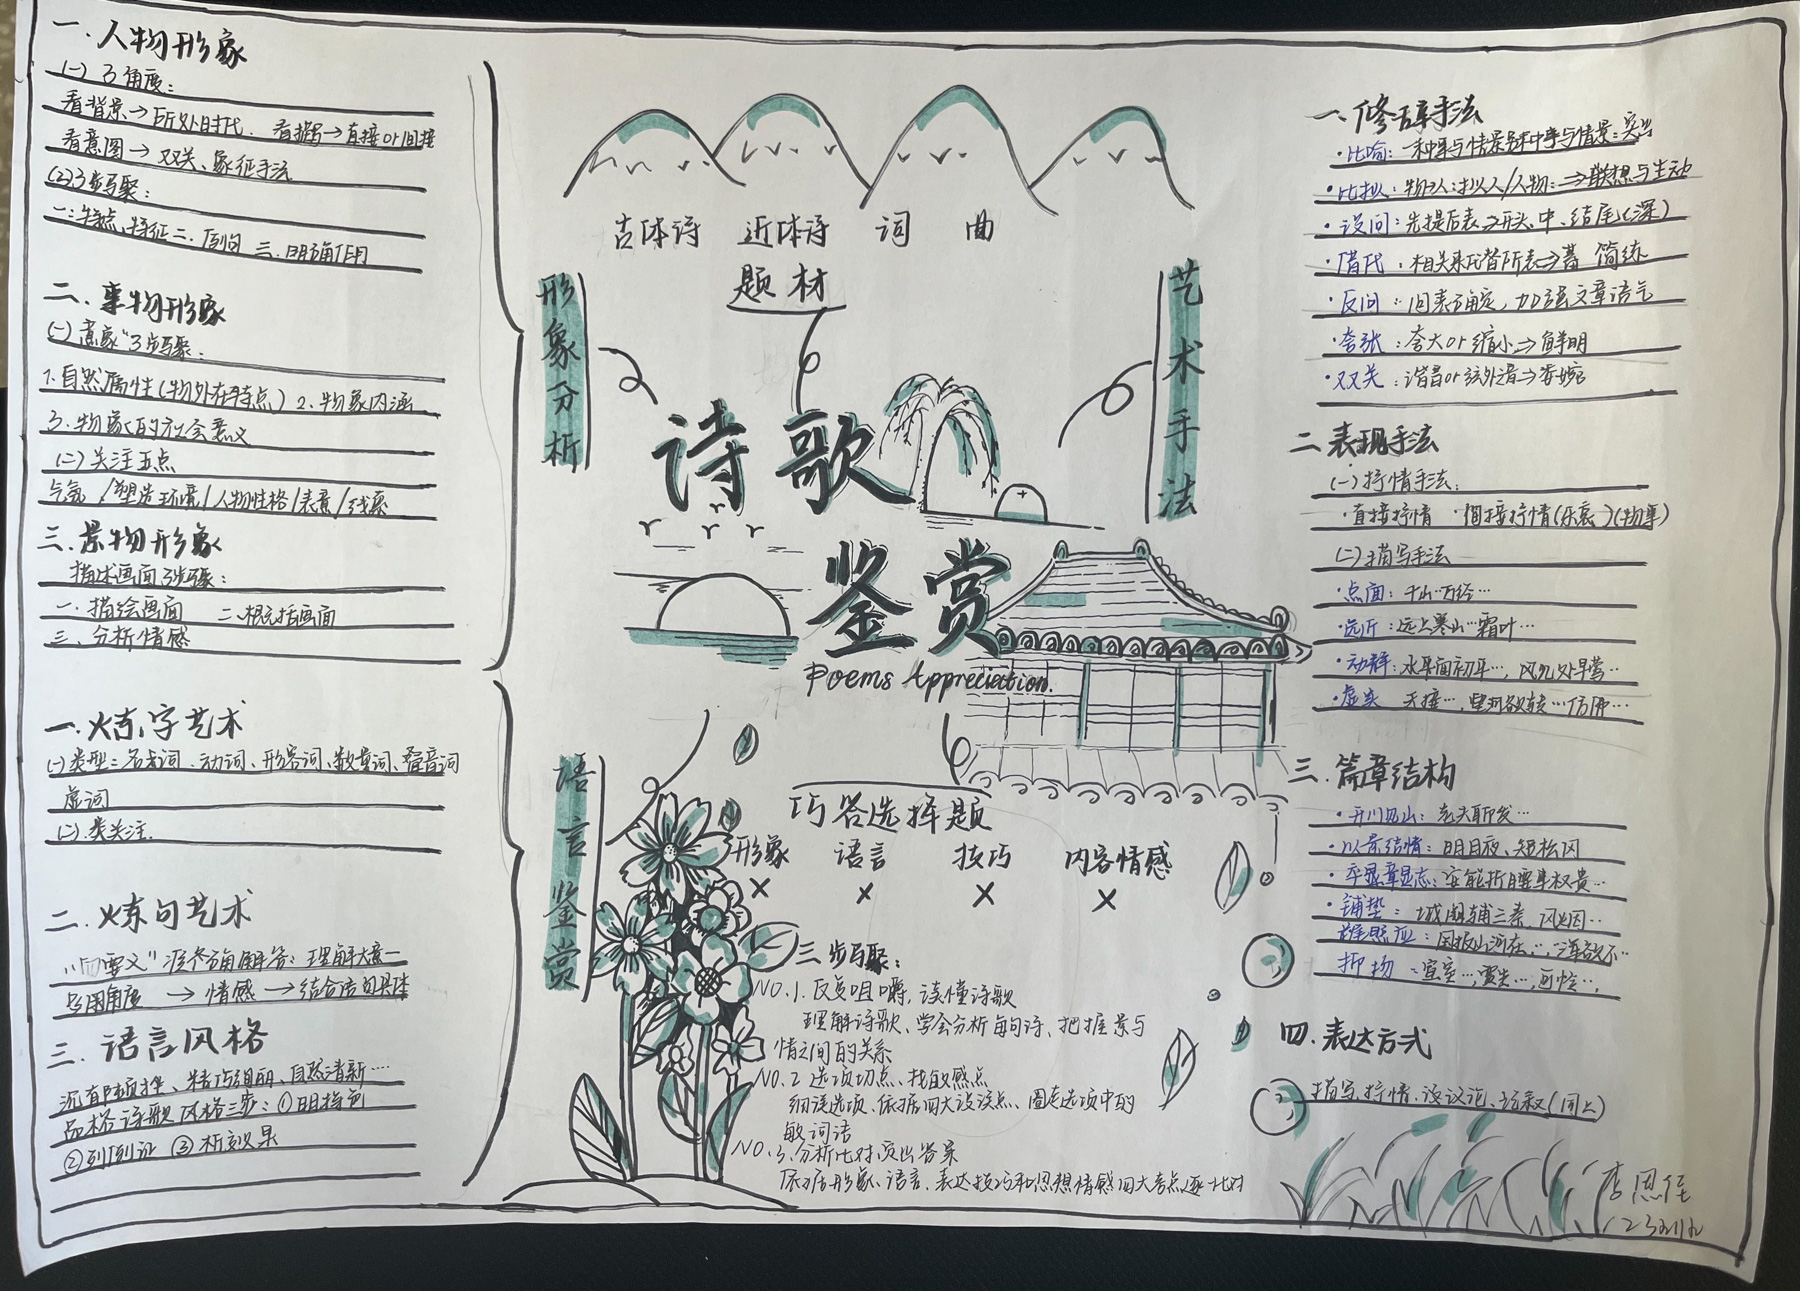 一.人物形象
(一)3角度:
看背景→所处时代. 看描写→直接or间接
看意图→双关、象征手法
(2)3步骤:
一:特点,特征 二. 三.明确作用
二.事物形象
(一)意象"3步骤.
1.自然属性(物外在特点) 2.物象内涵
3.物象的社会意义
(二)关注五点
气氛/塑造环境/人物性格/表意/线索
三.景物形象
描述画面3步骤:
一.描绘画面 二.概括画面
三、分析情感
一.炼字艺术
(一)类型:名代词、动词、形容词、数量词、叠音词
虚词
(二).类关注.
二.炼句艺术
理解大意—
→情感→结合语句具体
三.语言风格
沉有顿挫、精巧绚丽、自然清新…
品格诗歌风格三步:①明特色
②列例证 ③析效果
形象分析
语言鉴赏
古体诗 近体诗 词 曲
题材
诗歌
鉴赏
Poems Appreciation.
艺术手法
巧答选择题
形象 语言 技巧 内容情感
× × × ×
三步骤:
NO.1.反复咀嚼,读懂诗歌
理解诗歌、学会分析每句诗、把握景与
情之间的关系
NO.2 选项切点、找敏感点
细读选项、依据四大设误点、圈点选项中的
敏词语
NO.3.分析比对
依据形象、语言、表达技巧和思想情感四大考点逐一比对
一、修辞手法
·比喻:
·比拟:物→人:拟人/人物:→联想与生动
·设问:先提后表→开头、中、结尾(深)
·借代:相关来代替所表→ 简练
·反问:问表确定,加强文章语气
·夸张:夸大or缩小→鲜明
·双关:谐音or弦外音→委婉
二 表现手法
(一)抒情手法:
·直接抒情 ·间接抒情(乐哀)(物事)
(二)描写手法
·点面:千山…万径…
·远近:远上寒山…霜叶…
·动静:水平…,几处早莺…
·虚实 天接…,星河欲转…仿佛…
三.篇章结构
·开门见山:老夫聊发…
·以景结情:明月夜、短松冈
·卒章显志:安能折腰事权贵…
·铺垫:城阙辅三秦,风烟…
照应:国破山河在…,浑欲不…
抑扬:宣室…,虚…,可怜…,
四.表达方式
描写、抒情、议论、记叙(同上)
李恩